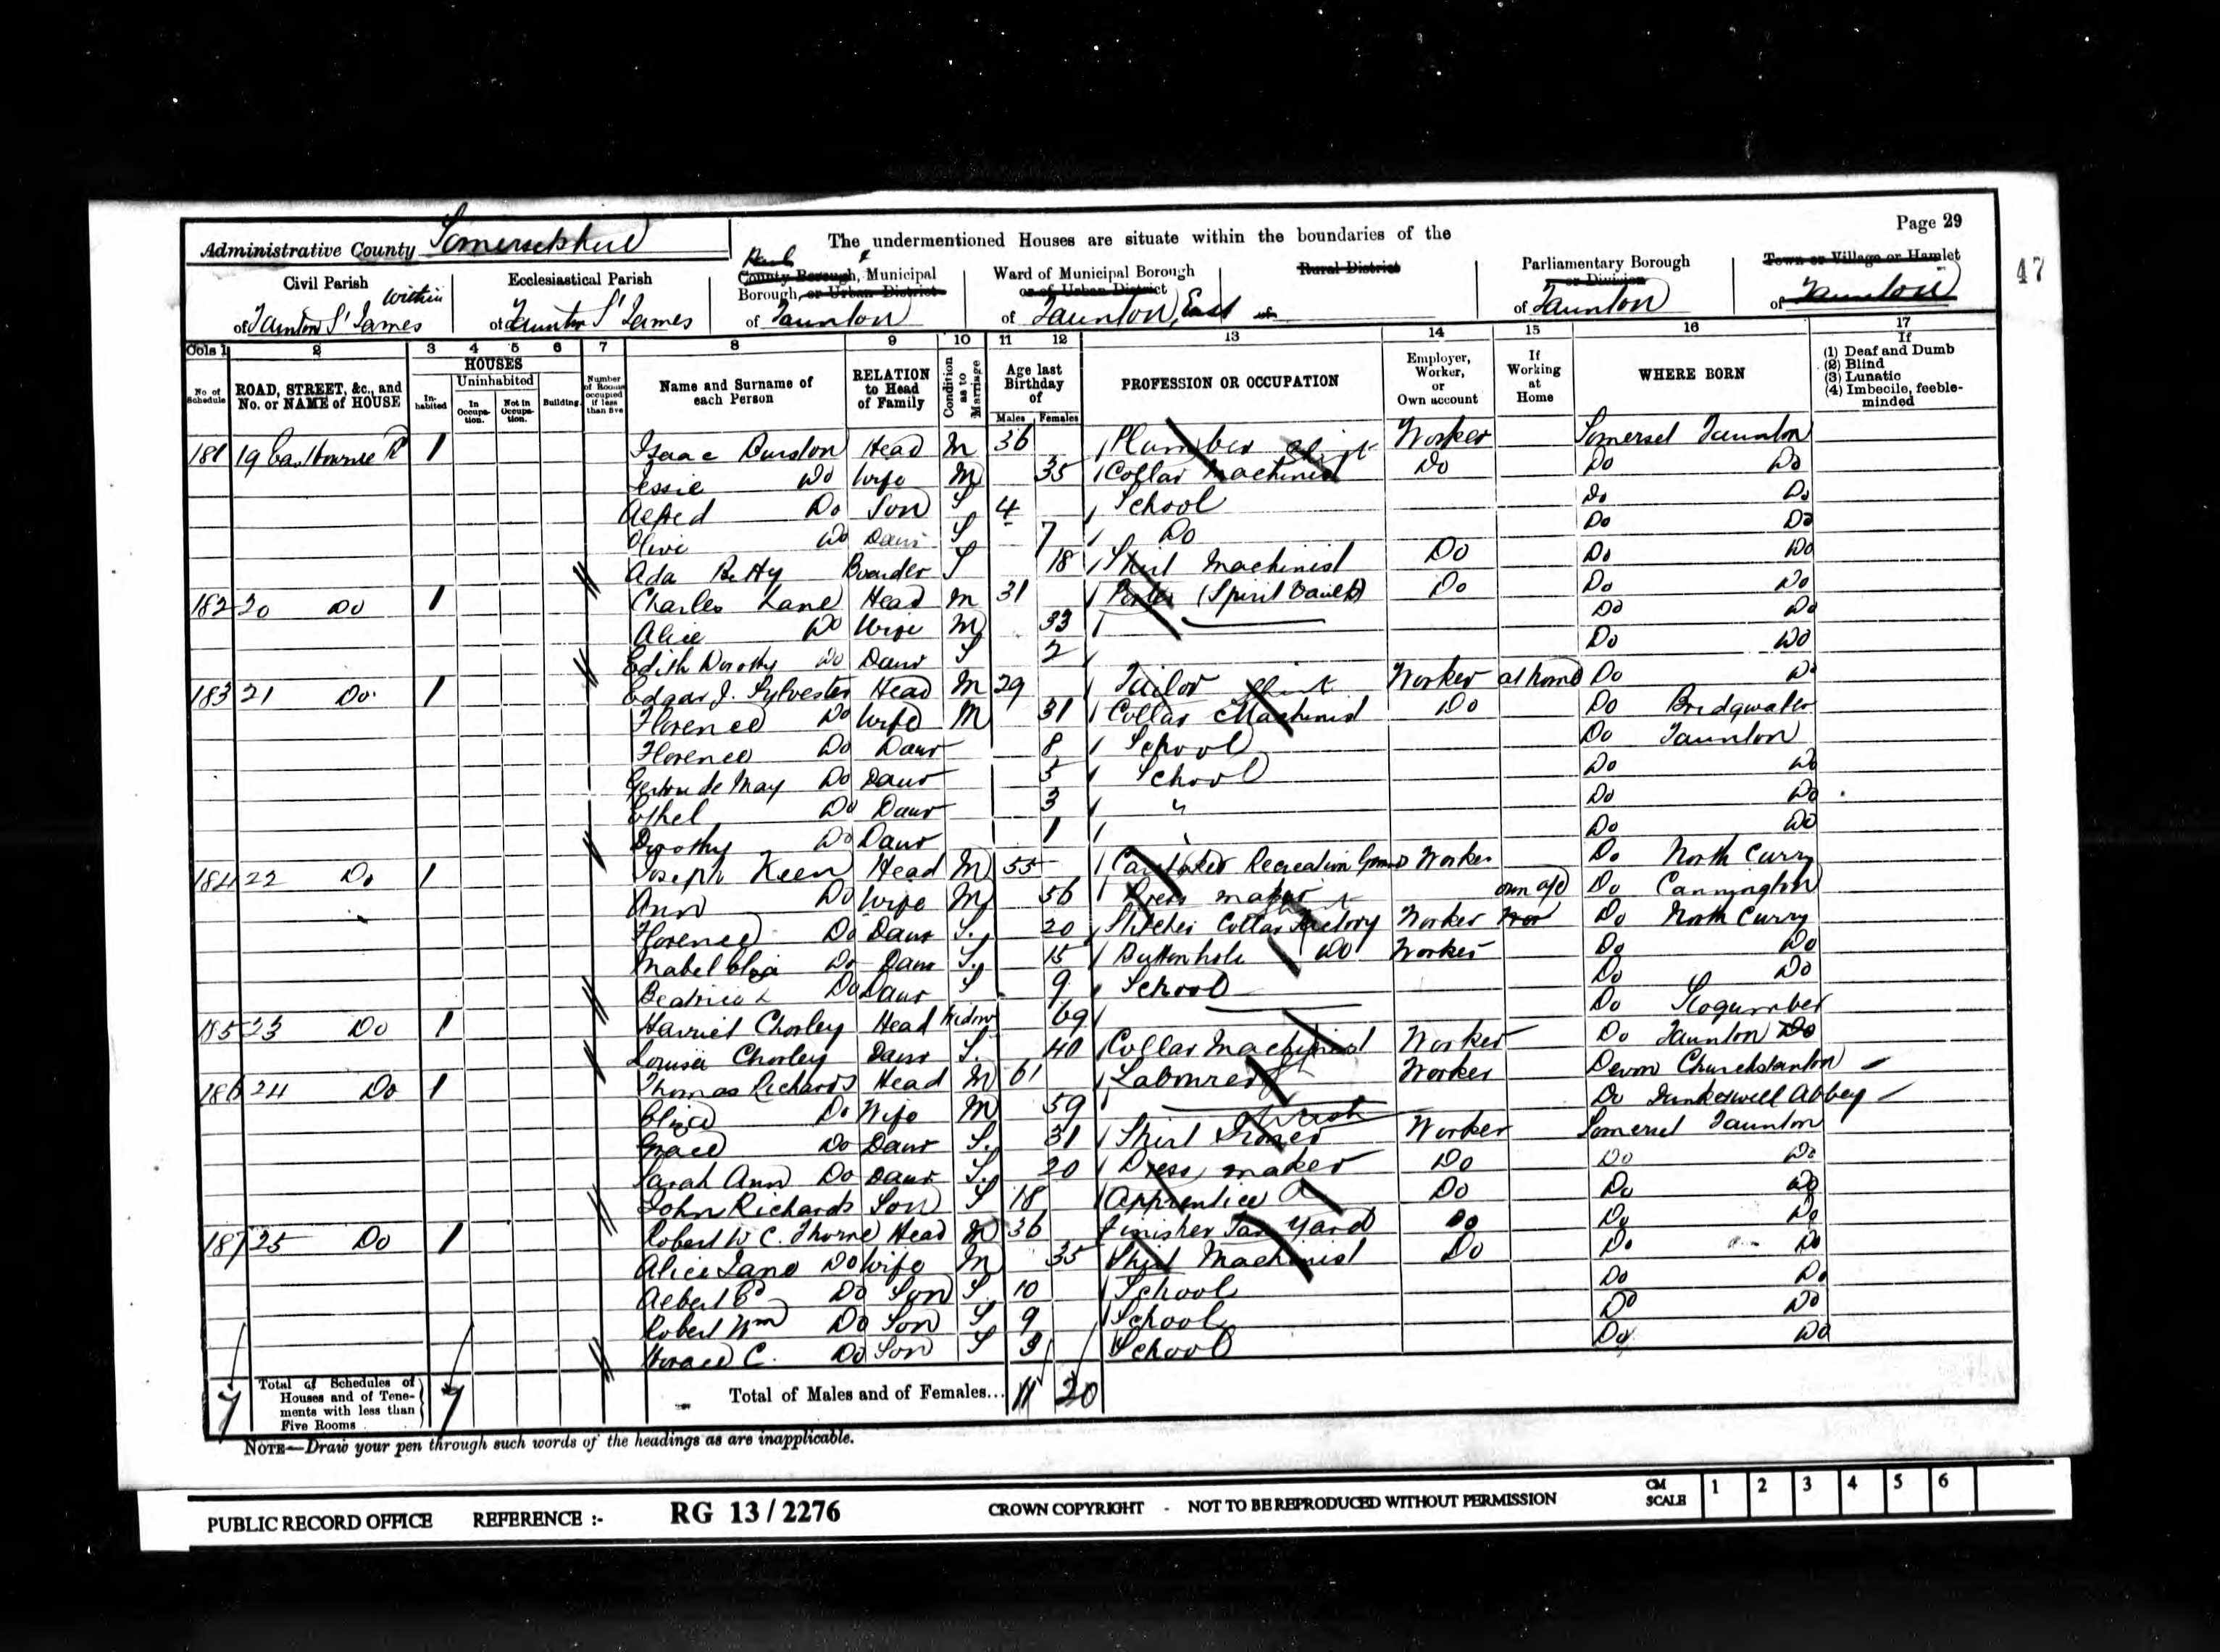 Page 29
47
Administrative County Somersetshire
The undermentioned Houses are situate within the boundaries of the
Civil Parish
within
of Taunton St James
Ecclesiastical Parish
of Taunton St James
County Borough, Municipal
Borough, or Urban District
of Taunton
Ward of Municipal Borough
or of Urban District
of Taunton, East
Rural District
Parliamentary Borough
or Division
of Taunton
Town or Village or Hamlet
of Taunton
Cols 1 2 3 4 5 6 7 8 9 10 11 12 13 14 15 16 17
No of Schedule
ROAD, STREET, &c., and No. or NAME of HOUSE
HOUSES
In-habited
Uninhabited
In Occupa-tion.
Not in Occupa-tion.
Building.
Number of Rooms occupied if less than five
Name and Surname of each Person
RELATION to Head of Family
Condition as to Marriage
Age last Birthday of
Males Females
PROFESSION OR OCCUPATION
Employer, Worker, or Own account
If Working at Home
WHERE BORN
If
(1) Deaf and Dumb
(2) Blind
(3) Lunatic
(4) Imbecile, feeble-minded
181 19 Eastbourne Rd 1 Isaac Durston Head M 36 Plumber Worker Somerset Taunton
Jessie Do Wife M 35 Collar Machinist Do Do Do
Alfred Do Son S 4 School Do Do
Olive Do Daur S 7 Do Do Do
Ada Betty Boarder S 18 Shirt Machinist Do Do Do
182 20 Do 1 Charles Lane Head M 31 Porter (Spirit Vaults) Do Do Do
Alice Do Wife M 33 Do Do
Edith Dorothy Do Daur S 2 Do Do
183 21 Do 1 Edgar J. Sylvester Head M 29 Tailor Worker at home Do Do
Florence Do Wife M 31 Collar Machinist Do Do Bridgwater
Florence Do Daur 8 School Do Taunton
Gertrude May Do Daur 5 School Do Do
Ethel Do Daur 3 " Do Do
Dorothy Do Daur 1 Do Do
184 22 Do 1 Joseph Keen Head M 55 Caretaker Recreation Grounds Worker Do North Curry
Ann Do Wife M 56 Dress maker own a/c Do Cannington
Florence Do Daur S. 20 Stitcher Collar Factory Worker Wor Do North Curry
Mabel Do Daur S. 15 Buttonhole Do Worker Do Do
Beatrice L Do Daur S 9 School Do Do
185 23 Do 1 Harriet Chorley Head Widow 69 Do Stogumber
Louisa Chorley Daur S. 40 Collar Machinist Worker Do Taunton Do
186 24 Do 1 Thomas Richards Head M 61 Labourer Worker Devon Churchstanton
Eliza Do Wife M 59 Do Dunkeswell Abbey
Grace Do Daur S. 31 Shirt Ironer Worker Somerset Taunton
Sarah Ann Do Daur S. 20 Dress maker Do Do Do
John Richards Son S 18 Apprentice Do Do Do
187 25 Do 1 Robert W C. Thorne Head M 36 Finisher Tan Yard Do Do Do
Alice Jane Do Wife M 35 Shirt Machinist Do Do Do
Albert Do Son S. 10 School Do Do
Robert Wm Do Son S 9 School Do Do
Horace C. Do Son S 3 School Do Do
7 Total of Schedules of Houses and of Tene-ments with less than Five Rooms 7 Total of Males and of Females... 11 20
NOTE—Draw your pen through such words of the headings as are inapplicable.
PUBLIC RECORD OFFICE REFERENCE :- RG 13/2276 CROWN COPYRIGHT - NOT TO BE REPRODUCED WITHOUT PERMISSION CM SCALE 1 2 3 4 5 6